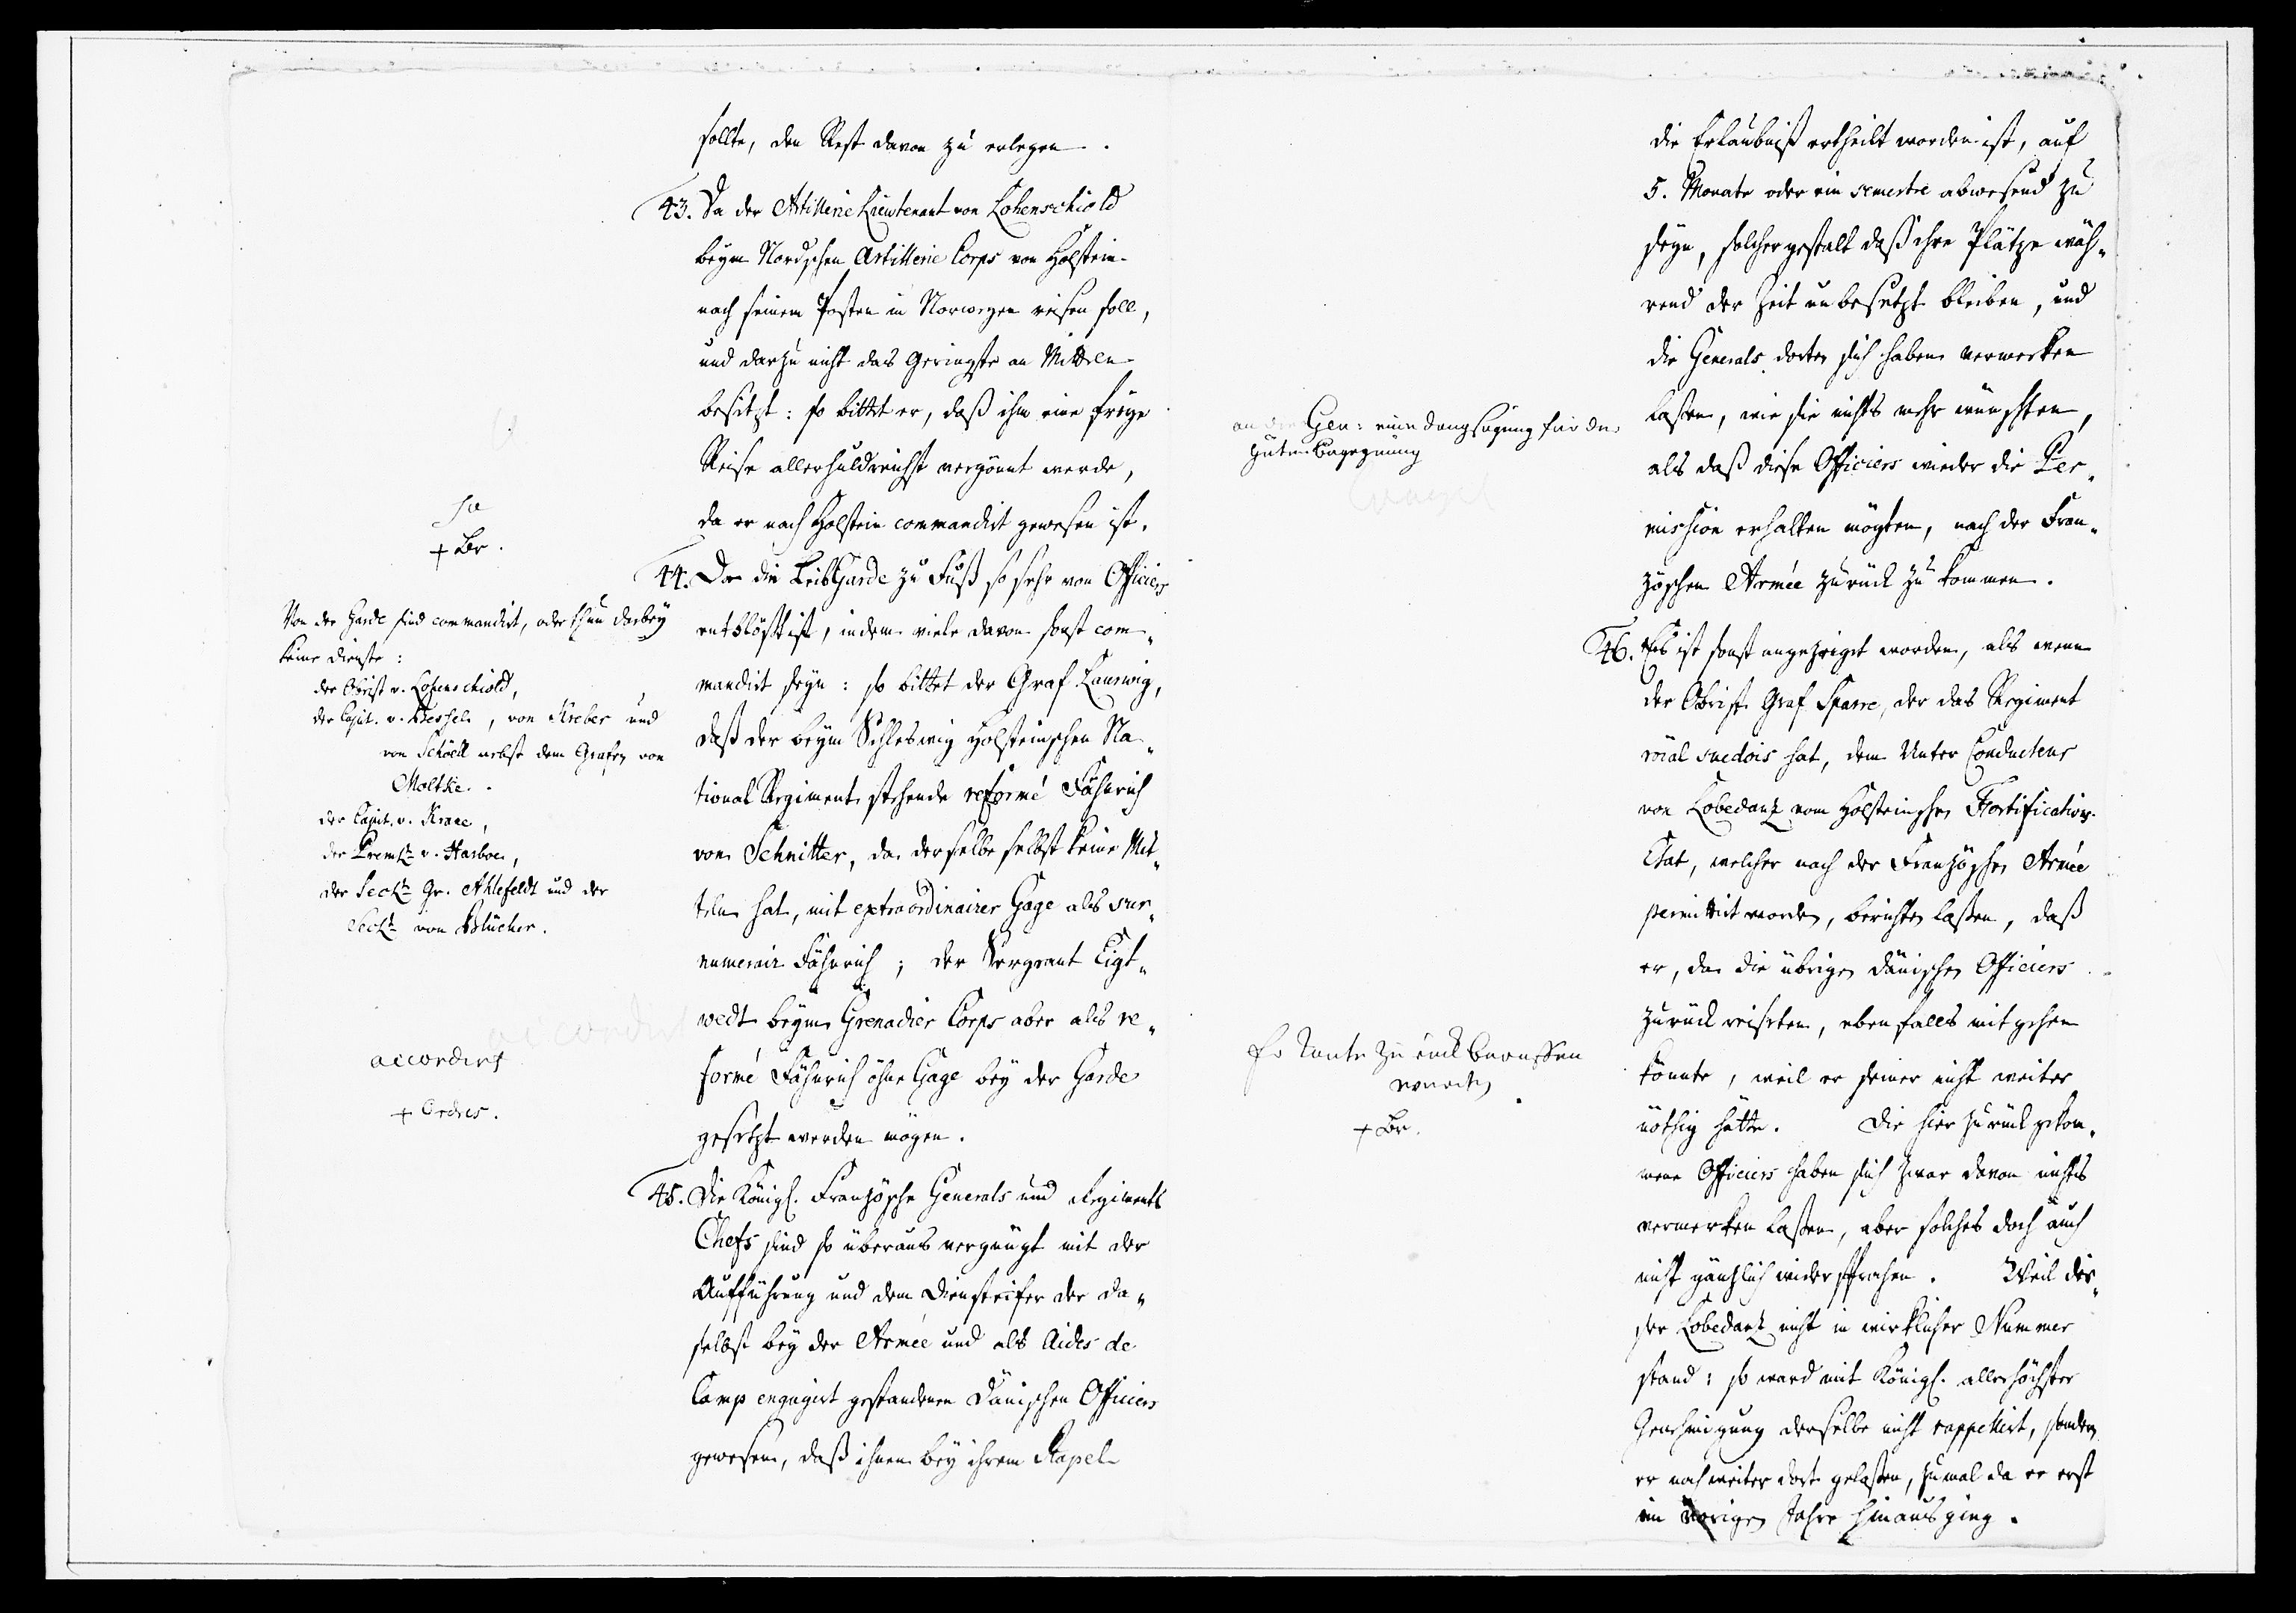 sollte, den Rest davon zu erlegen.
43. Da der Artillerie Lieutenant von Lohenschiold
beym Nordschen Artillerie Corps von Holstein
nach seinem Posten in Norwegen reisen soll,
und darzu nicht das Geringste an Mitteln
besitzt: so bittet er, daß ihm eine freye
Reise allerhuldreichst vergönnt werde,
da er nach Holstein commandirt gewesen ist.
Ja
+ Br.
44. Da die LeibGarde zu Fuß so sehr von Officiers
entblößt ist, indem viele davon sonst com„
mandirt seyn: so bittet der Graf Laurwig,
daß der beym Schleswig Holsteinschen Na„
tional Regiment stehende reformé Fähnrich
von Schnitter, da derselbe selbst keine Mit„
teln hat, mit extraordinairer Gage als sur„
numerair Fähnrich; der Sergeant Eigt„
vedt beym Grenadier Corps aber als re„
formé Fähnrich ohne Gage bey der Garde
gesetzt werden mögen.
Von der Garde sind commandirt, oder thun darbey
keine Dienste:
der Obrist v. Lohenschiold,
der Capit. v. Hessel, von Kreber und
von Schöell nebst dem Grafen von
Moltke.
der Capit. v. Krane,
der Premlt v. Harboe,
der Seclt Gr. Ahlefeldt und der
Seclt von Blücher.
accordirt
+ Ordres.
45. Die Königl. Französche Generals und Regiments
Chefs sind so überaus vergnügt mit der
Aufführung und dem Diensteifer der da„
selbst bey der Armée und als Aides de
Camp engagirt gestandenen Dänischen Officiers
gewesen, daß ihnen bey ihrem Rapel
die Erlaubniß ertheilt worden ist, auf
5. Monate oder ein semestre abwesend zu
seyn, solchergestalt daß ihre Plätze wäh„
rend der Zeit unbesetzt bleiben, und
die Generals dorten sich haben vermerken
laßen, wie sie nichts mehr wünschten,
als daß diese Officiers wieder die Per„
mission erhalten mögten, nach der Fran„
zöschen Armée zurück zu kommen.
an die Gen: eine Dangsagung für die
guten Begegnung
46. Es ist sonst angezeiget worden, als wenn
der Obrist Graf Sparre, der das Regiment
roïal suedois hat, dem Unter Conducteur
von Lobedanz vom Holsteinschen Fortifications
Etat, welcher nach der Französchen Armée
permittirt worden, berichten laßen, daß
er, da die übrigen Dänischen Officiers
zurück reiseten, ebenfalls mit gehen
könnte, weil er seiner nicht weiter
nöthig hätte. Die hier zurück gekom„
mene Officiers haben sich zwar davon nichts
vermerken laßen, aber solches doch auch
nicht gänzlich widersprochen. Weil die„
ser Lobedanz nicht in wirklicher Nummer
stand: so ward mit Königl. allerhöchster
Genehmigung derselbe nicht rappellirt, sondern
er noch weiter dort gelaßen, zumal da er erst
im vorigen Jahre hinausging.
Er konte zurück beruffen
werden.
+ Br.